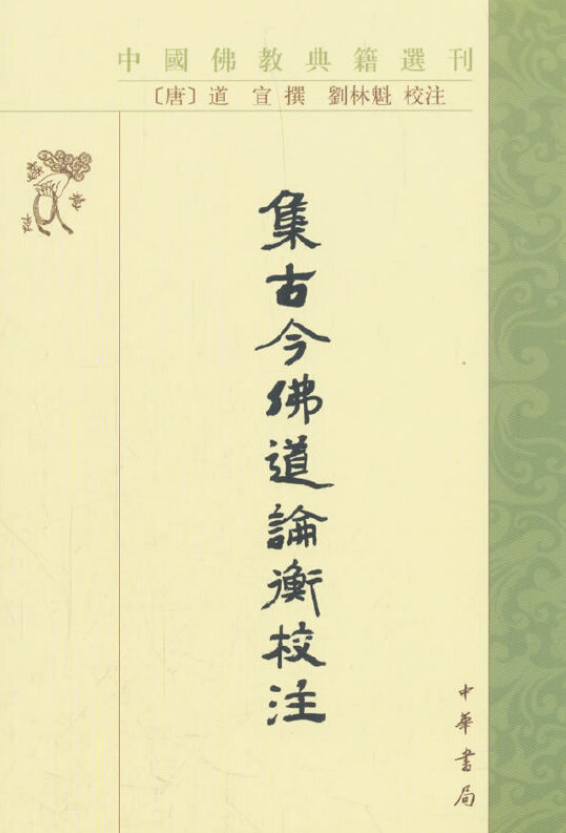 中國佛教典籍選刊
〔唐〕道 宣 撰 劉林魁 校注
集古今佛道論衡校注
中華書局